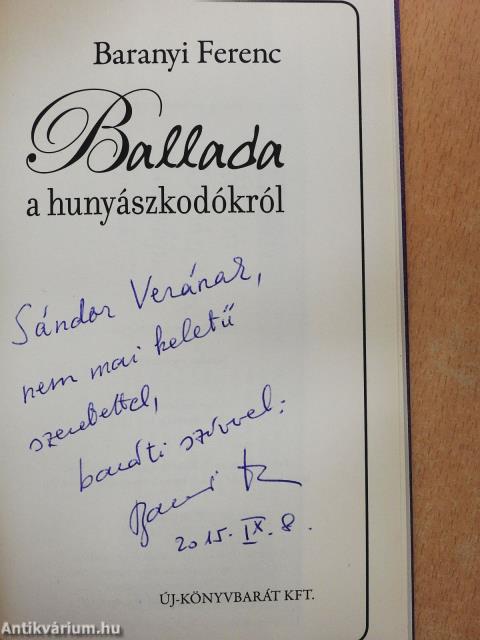 Baranyi Ferenc
Ballada
a hunyászkodókról
Sándor Verának,
nem mai keletű
szeretettel,
baráti szívvel:
2015. IX. 8.
ÚJ-KÖNYVBARÁT KFT.
Antikvárium.hu